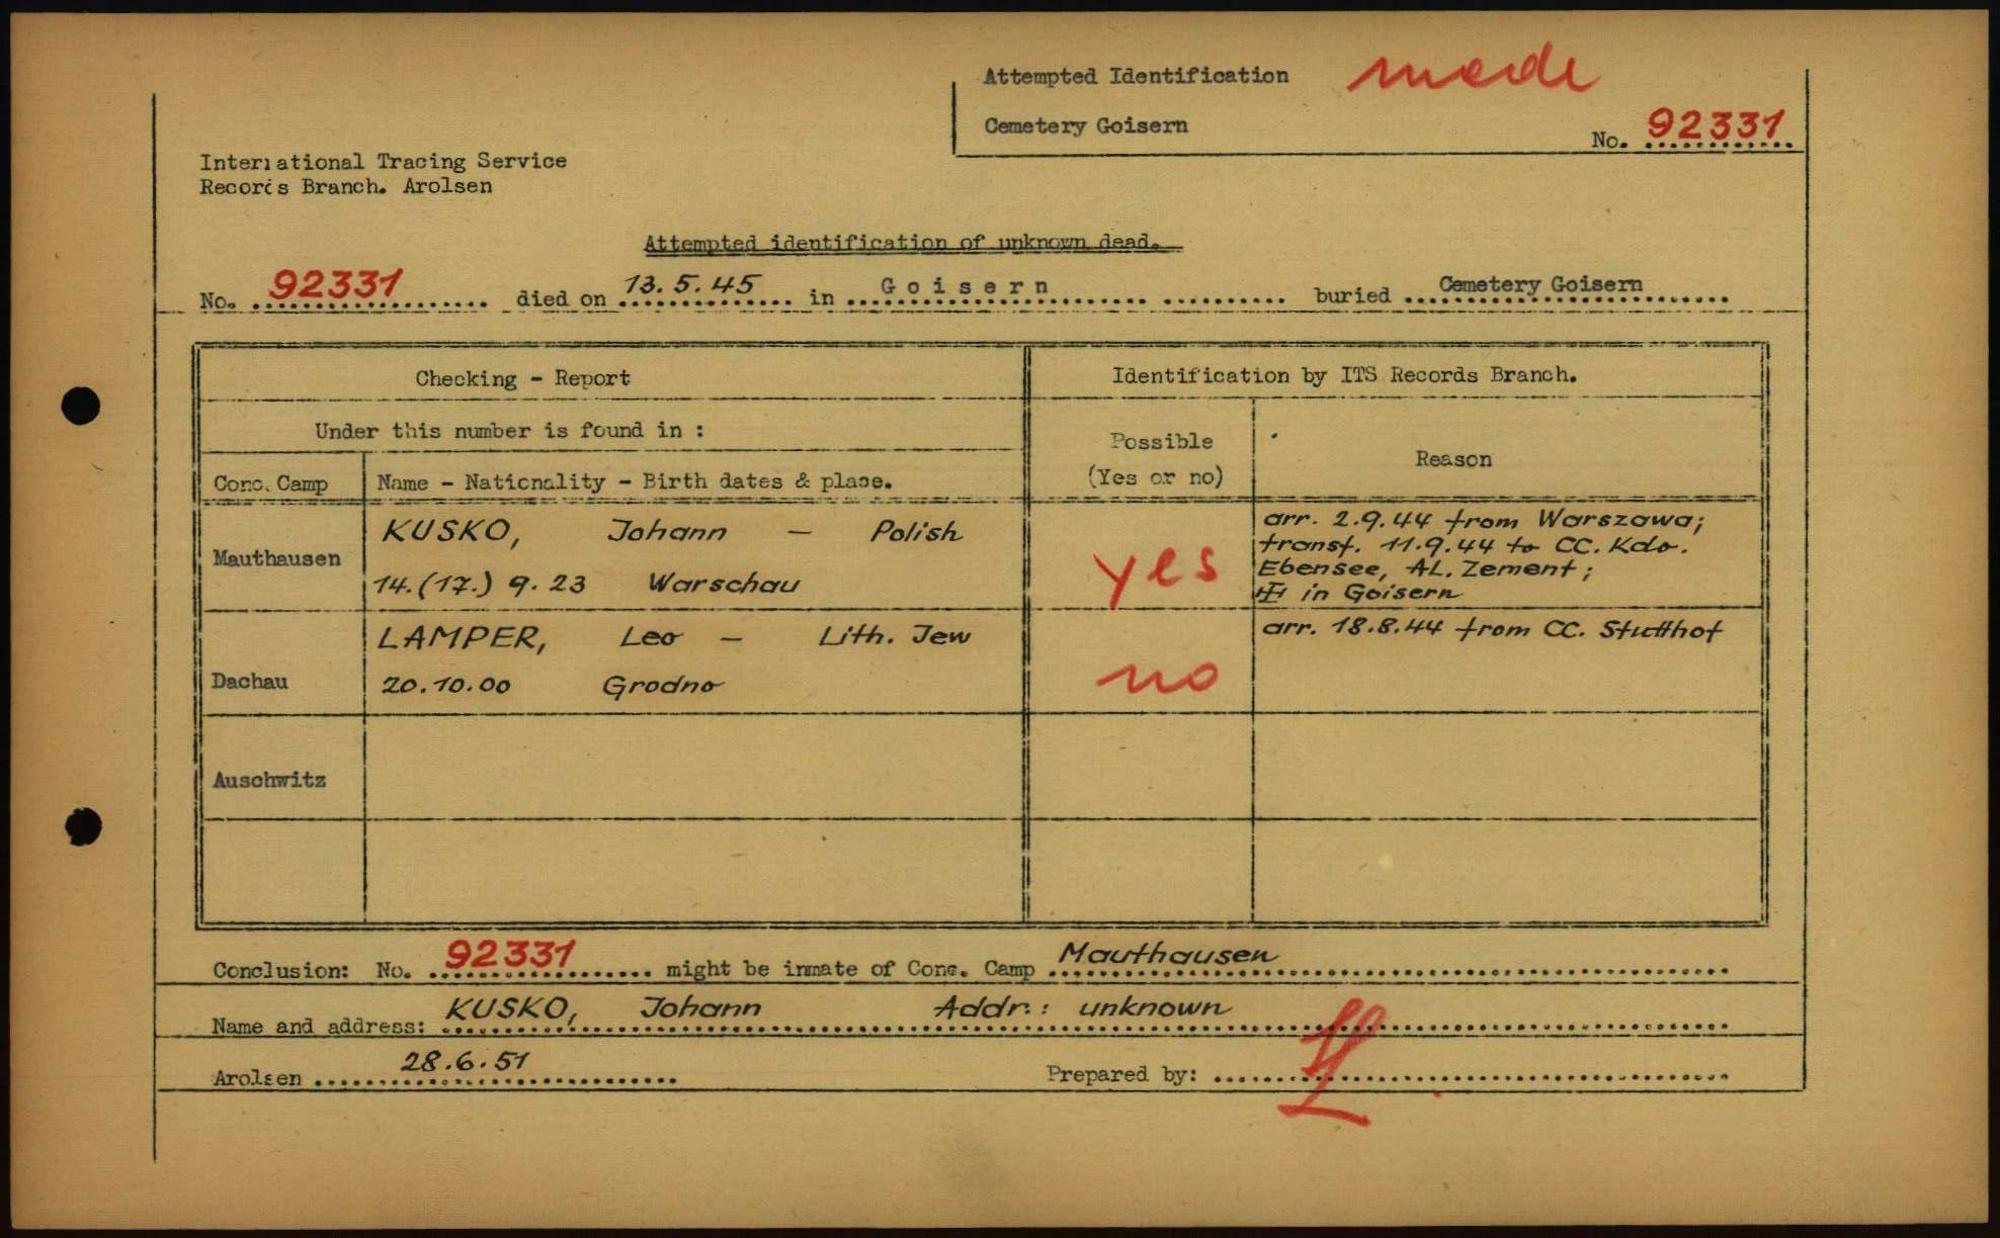 Attempted Identification made
Cemetery Goisern
No. 92331
International Tracing Service
Records Branch. Arolsen
Attempted identification of unknown dead.
No. 92331 died on 13.5.45 in Goisern buried Cemetery Goisern
Checking - Report
Identification by ITS Records Branch.
Under this number is found in :
Possible
(Yes or no)
Reason
Conc. Camp
Name - Nationality - Birth dates & place.
Mauthausen
KUSKO, Johann - Polish
14.(17.) 9. 23 Warschau
yes
arr. 2.9.44 from Warszawa;
transf. 11.9.44 to CC. Kdo.
Ebensee, AL. Zement;
in Goisern
Dachau
LAMPER, Leo - Lith. Jew
20.10.00 Grodno
no
arr. 18.8.44 from CC. Stutthof
Auschwitz
Conclusion: No. 92331 might be inmate of Conc. Camp Mauthausen
Name and address: KUSKO, Johann Addr.: unknown
Arolsen 28.6.51
Prepared by: